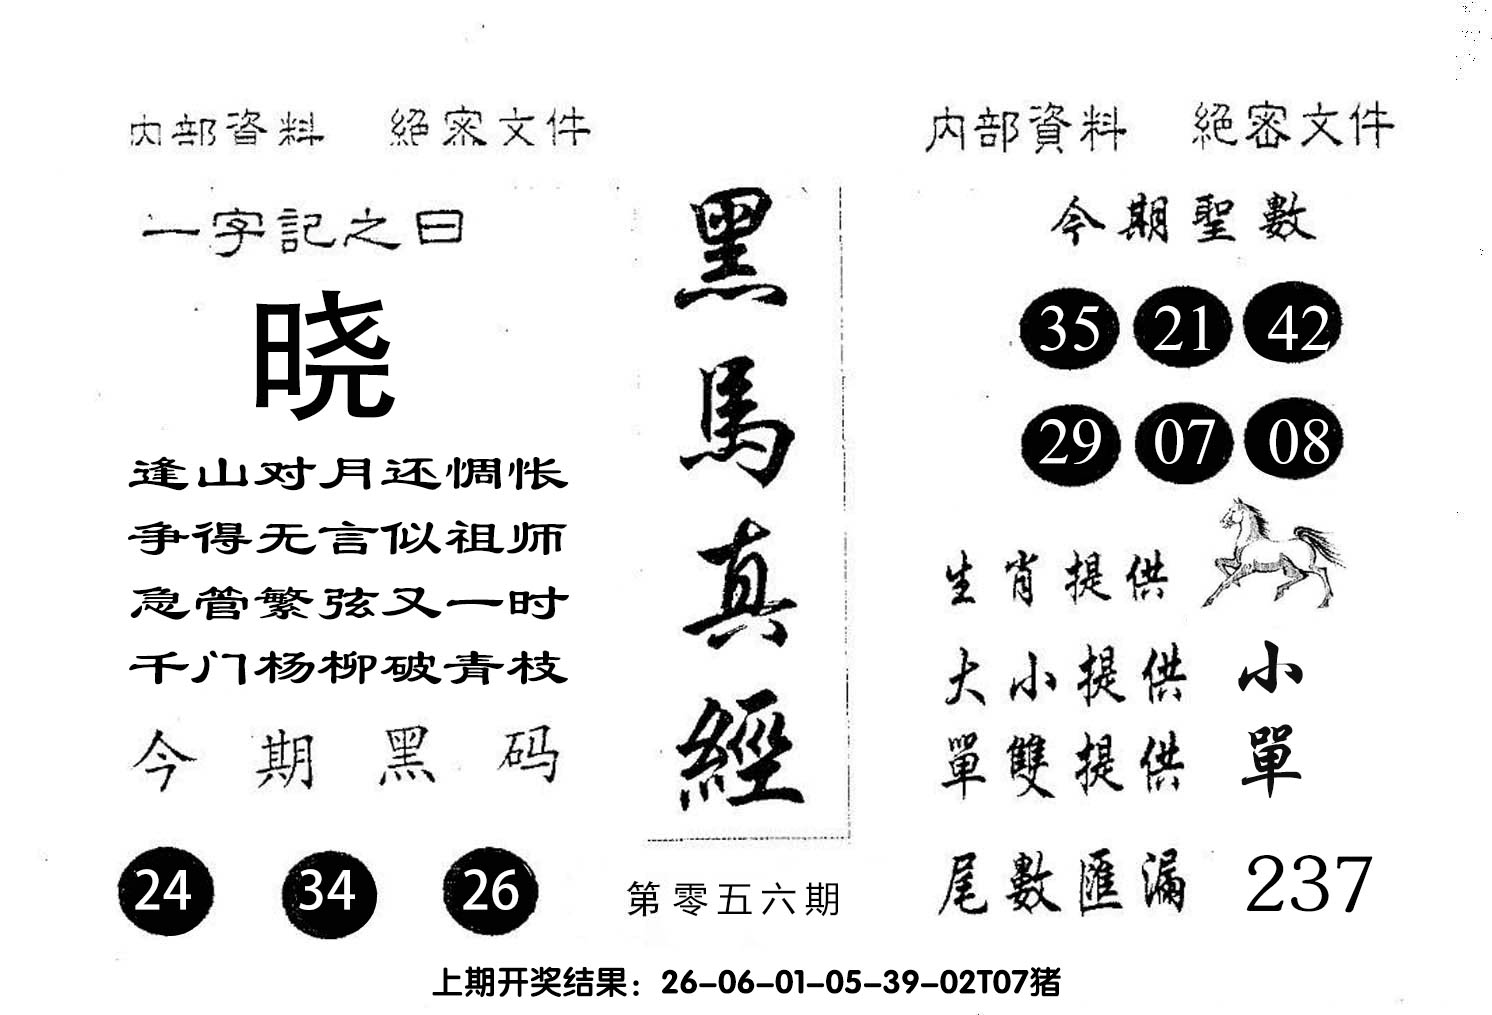 内部資料　絕密文件
一字記之曰
晓
逢山对月还惆怅
争得无言似祖师
急管繁弦又一时
千门杨柳破青枝
今期黑码
24 34 26
黑馬真經
第零五六期
内部資料　絕密文件
今期聖數
35 21 42
29 07 08
生肖提供
大小提供 小
單雙提供 單
尾數匯漏 237
上期开奖结果：26-06-01-05-39-02T07猪